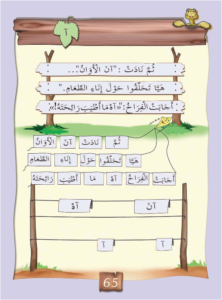 آ
ثُمَّ نَادَتْ :"آنَ الْأَوَانُ"...
هَيَّا تَحَلَّقُوا حَوْلَ إِنَاءِ الطَّعَامِ."
أَجَابَتِ الْفِرَاخُ:"آهْ مَا أَطْيَبَ رَائِحَتَهُ!"
ثُمَّ نَادَتْ آنَ الْأَوَانُ
هَيَّا تَحَلَّقُوا حَوْلَ إِنَاءِ الطَّعَامِ
أَجَابَتِ الْفِرَاخُ آهْ مَا أَطْيَبَ رَائِحَتَهُ
آنَ آهْ
آ آ
65